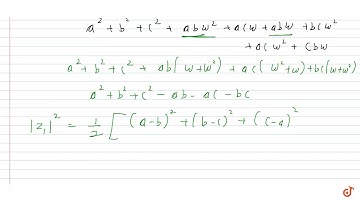 a² + b² + c² + abω² + acω + abω + bcω²
+ acω² + cbω
a² + b² + c² + ab(ω + ω²) + ac(ω² + ω) + bc(ω + ω²)
a² + b² + c² - ab - ac - bc
|z₁|² = 1/2 [(a-b)² + (b-c)² + (c-a)²